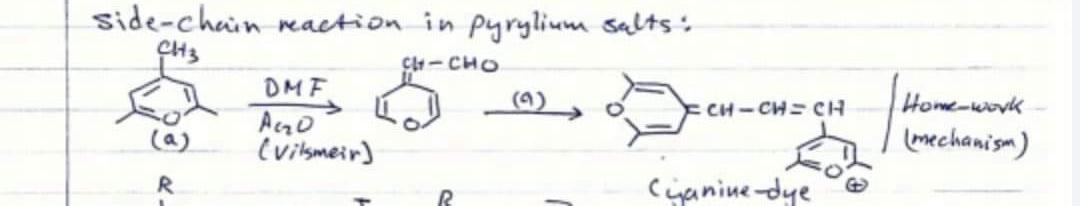 side-chain reaction in pyrylium salts:
CH3
O
(a)
DMF
Ac2O
(Vilsmeir)
CH-CHO
O
(a)
O =CH-CH=CH
O ⊕
Cyanine-dye
Home-work
(mechanism)
R
R